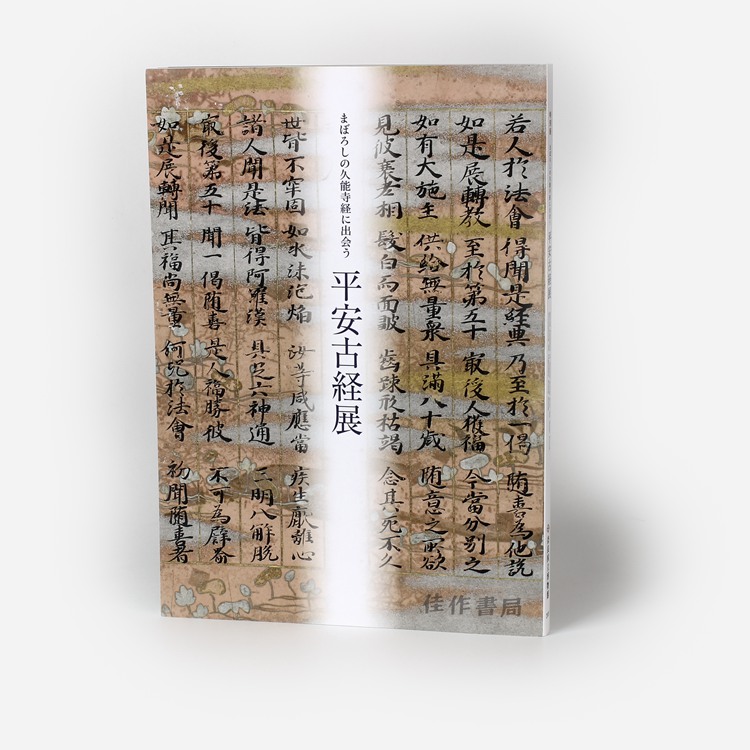 若人於法會 得聞是經典 乃至於一偈 随喜為他説
如是展轉教 至於第五十 最後人獲福 今當分別之
如有大施主 供給無量衆 具滿八十歳 随意之所欲
見彼衰老相 髮白而面皺 齒踈形枯竭 念其死不久
まぼろしの久能寺経に出会う
平安古経展
世皆不牢固 如水沫泡焔 汝等咸應當 疾生厭離心
諸人聞是法 皆得阿羅漢 具足六神通 三明八解脱
最後第五十 聞一偈随喜 是人福勝彼 不可為譬喩
如是展轉聞 其福尚無量 何況於法會 初聞随喜者
平安古経展
佳作書局